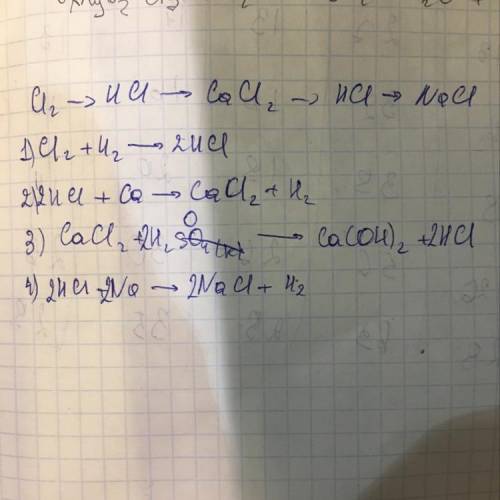 Cl₂ → HCl → CaCl₂ → HCl → NaCl
1) Cl₂ + H₂ → 2HCl
2) 2HCl + Ca → CaCl₂ + H₂
3) CaCl₂ + 2H₂O → Ca(OH)₂ + 2HCl
4) 2HCl + 2Na → 2NaCl + H₂